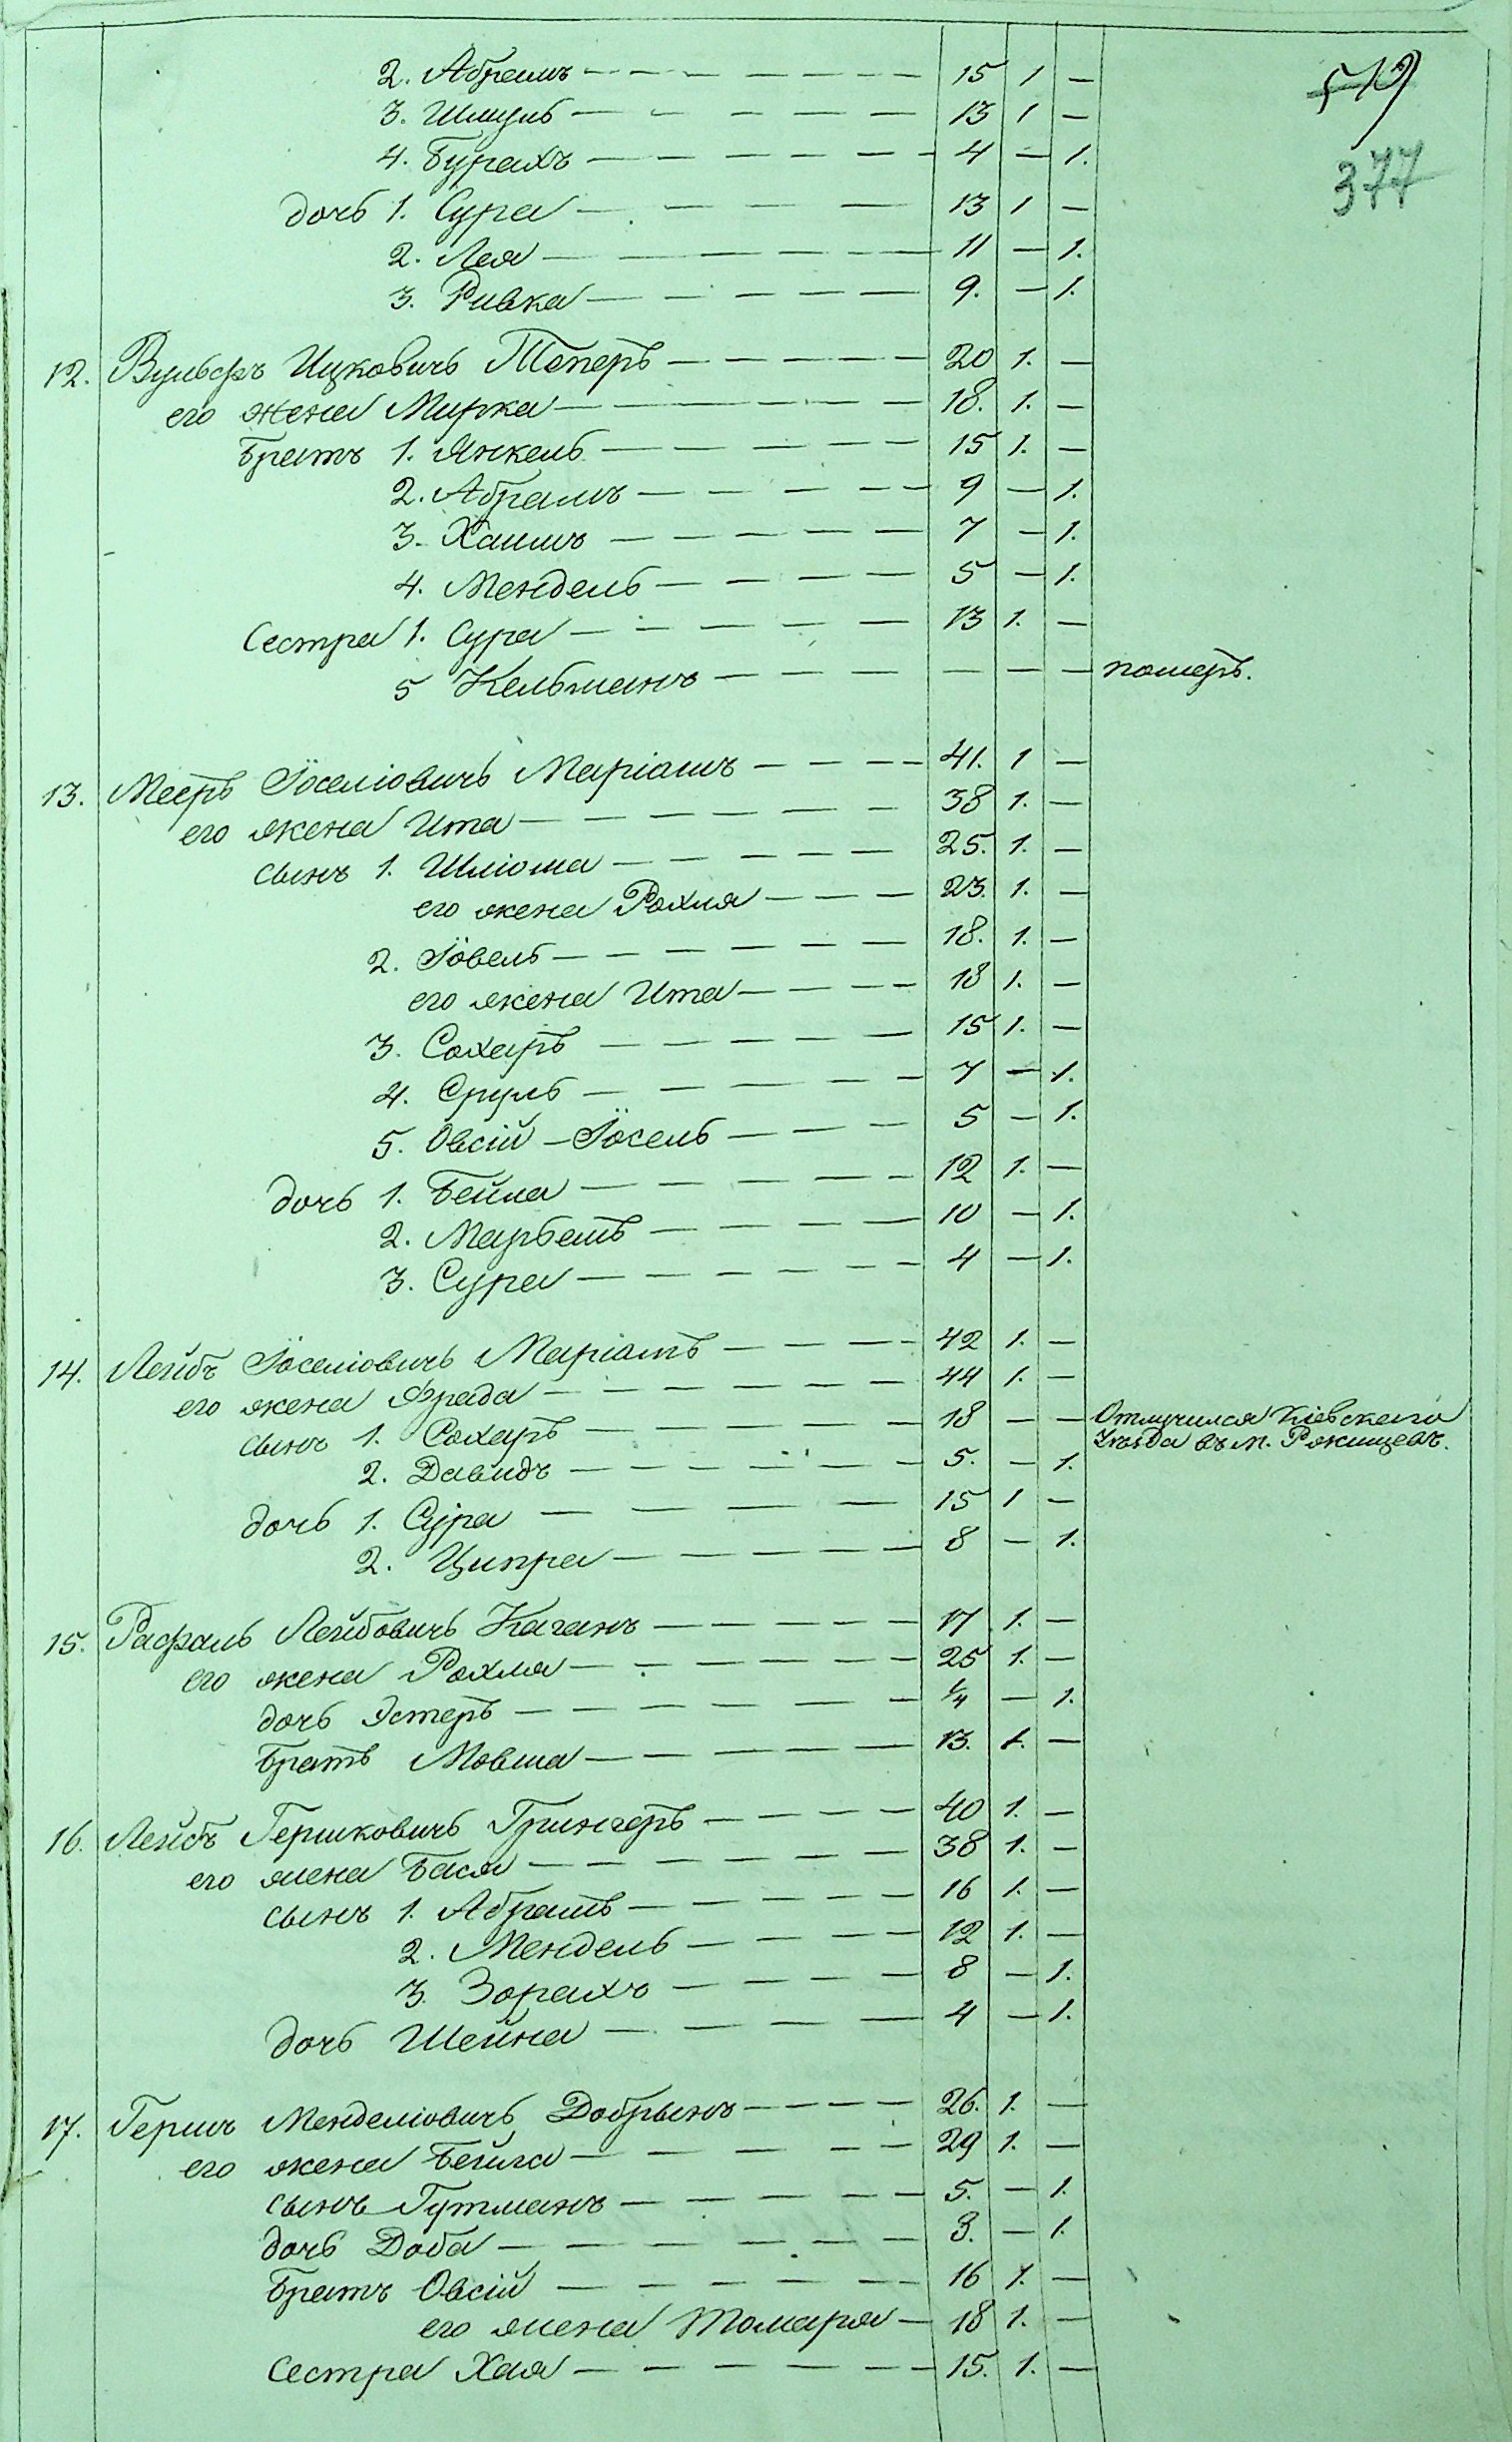 519
377
2. Абрамъ — 15 1 —
3. Шмуль — 13 1 —
4. Бурахъ — 4 — 1.
дочь 1. Сура — 13 1 —
2. Лея — 11 — 1.
3. Ривка — 9. — 1.
12. Вульфъ Ицковичъ Теперъ — 20 1. —
его жена Мирка — 18. 1. —
Братъ 1. Янкель — 15 1. —
2. Абрамъ — 9 — 1.
3. Хаимъ — 7 — 1.
4. Мендель — 5 — 1.
Сестра 1. Сура — 13 1. —
5 Кельманъ — — — — померъ.
13. Мееръ Іоселіовичъ Маріамъ — 41. 1 —
его жена Ита — 38 1. —
сынъ 1. Шліома — 25. 1. —
его жена Рохля — 23. 1. —
2. Іовель — 18. 1. —
его жена Ита — 18 1. —
3. Сохаръ — 15 1. —
4. Сруль — 7 — 1.
5. Овсій-Іосель — 5 — 1.
дочь 1. Бейла — 12 1. —
2. Марьемъ — 10 — 1.
3. Сура — 4 — 1.
14. Лейбъ Іоселіовичъ Маріамъ — 42 1. —
его жена Фрада — 44 1. —
сынъ 1. Сохаръ — 18 — — Отлучился Кіевскаго
Уѣзда въ м. Рожищевъ.
2. Давидъ — 5. — 1.
дочь 1. Сура — 15 1 —
2. Ципра — 8 — 1.
15. Рафаль Лейбовичъ Каганъ — 17 1. —
его жена Рохля — 25 1. —
дочь Эстеръ — 1/4 — 1.
Братъ Мовша — 13. 1. —
16. Лейбъ Гершковичъ Грингеръ — 40 1. —
его жена Бася — 38 1. —
сынъ 1. Абрамъ — 16 1. —
2. Мендель — 12 1. —
3. Зорахъ — 8 — 1.
дочь Шейна — 4 — 1.
17. Гершъ Менделіовичъ Добрынъ — 26. 1. —
его жена Бейла — 29 1. —
сынъ Гутманъ — 5. — 1.
дочь Доба — 3. — 1.
Братъ Овсій — 16 1. —
его жена Томаря — 18 1. —
Сестра Хая — 15. 1. —